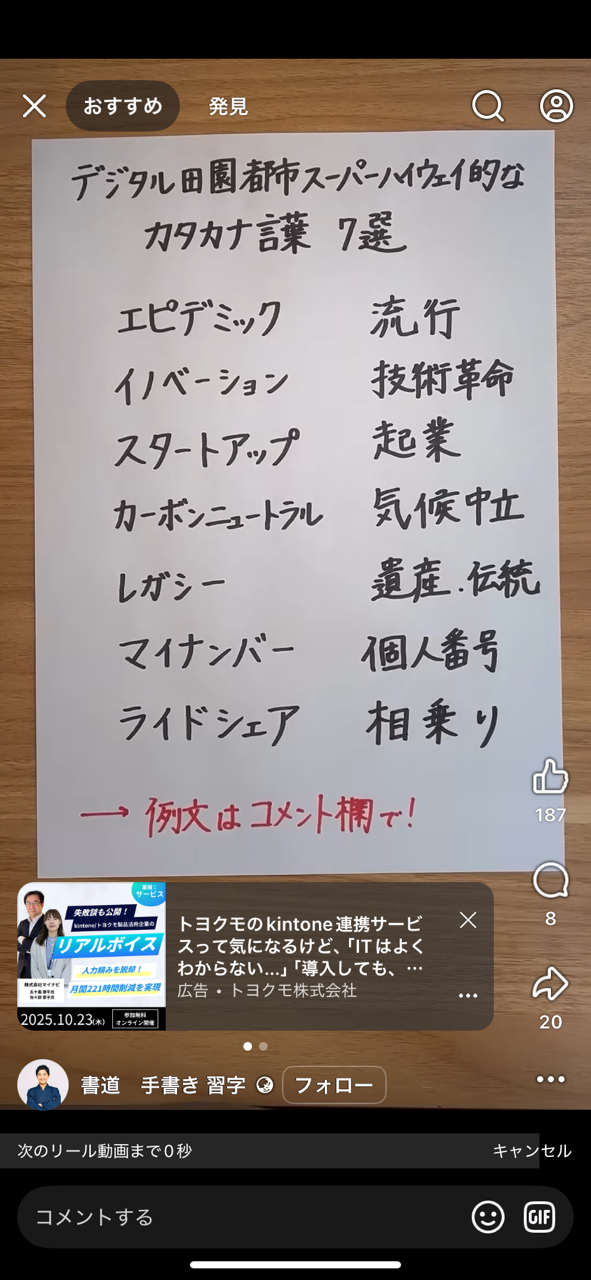 おすすめ 発見
デジタル田園都市スーパーハイウェイ的な
カタカナ言葉 7選
エピデミック 流行
イノベーション 技術革命
スタートアップ 起業
カーボンニュートラル 気候中立
レガシー 遺産.伝統
マイナンバー 個人番号
ライドシェア 相乗り
→ 例文はコメント欄で!
187
8
20
業種:
サービス
失敗談も公開!
kintone/トヨクモ製品活用企業の
リアルボイス
人力頼みを脱却!
月間221時間削減を実現
株式会社マイナビ
2025.10.23(木)
参加無料
オンライン開催
トヨクモのkintone連携サービ
スって気になるけど、「ITはよく
わからない...」「導入しても、…
広告・トヨクモ株式会社
書道 手書き 習字
フォロー
次のリール動画まで0秒
キャンセル
コメントする
GIF